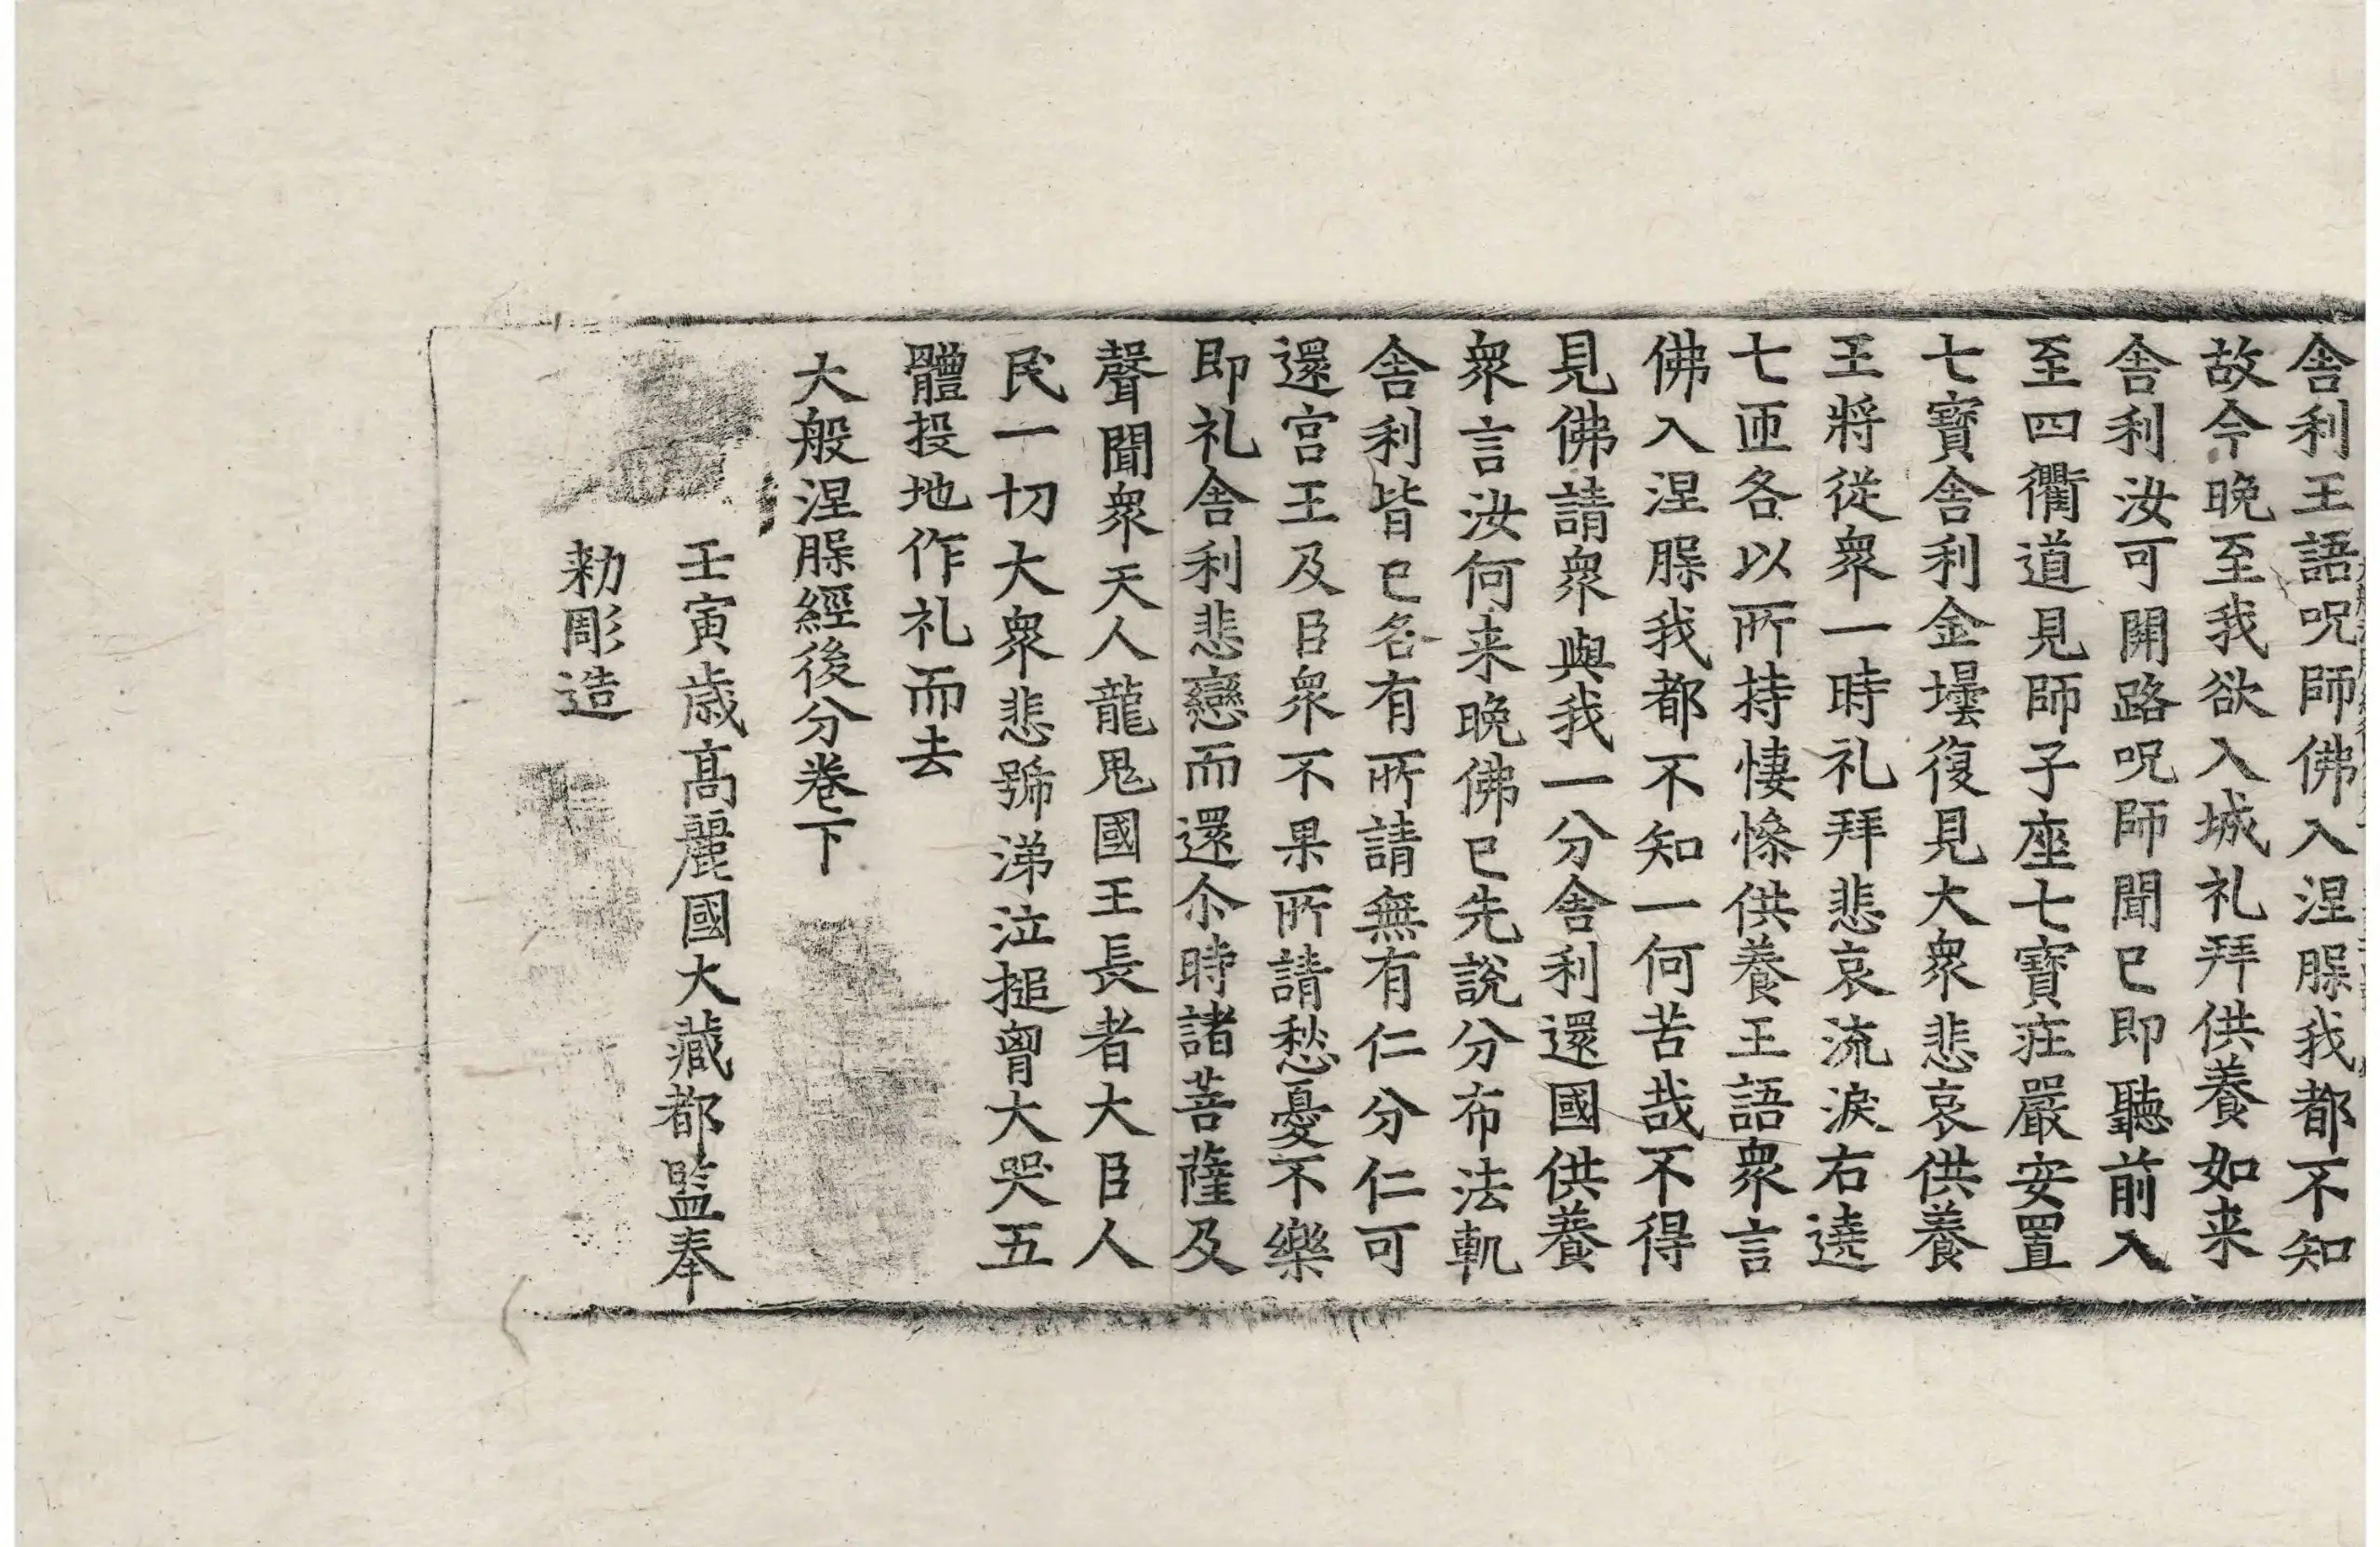 舎利王語呪師佛入涅槃我都不知
故今晩至我欲入城礼拜供養如来
舎利汝可開路呪師聞已即聽前入
至四衢道見師子座七寶莊嚴安置
七寶舎利金壜復見大衆悲哀供養
王將從衆一時礼拜悲哀流淚右遶
七匝各以所持悽慘供養王語衆言
佛入涅槃我都不知一何苦哉不得
見佛請衆與我一分舎利還國供養
衆言汝何来晩佛已先說分布法軌
舎利皆已各有所請無有仁分仁可
還宫王及臣衆不果所請愁憂不樂
即礼舎利悲戀而還尒時諸菩薩及
聲聞衆天人龍鬼國王長者大臣人
民一切大衆悲號涕泣搥胷大哭五
體投地作礼而去
大般涅槃經後分卷下
壬寅歳髙麗國大藏都監奉
勑彫造